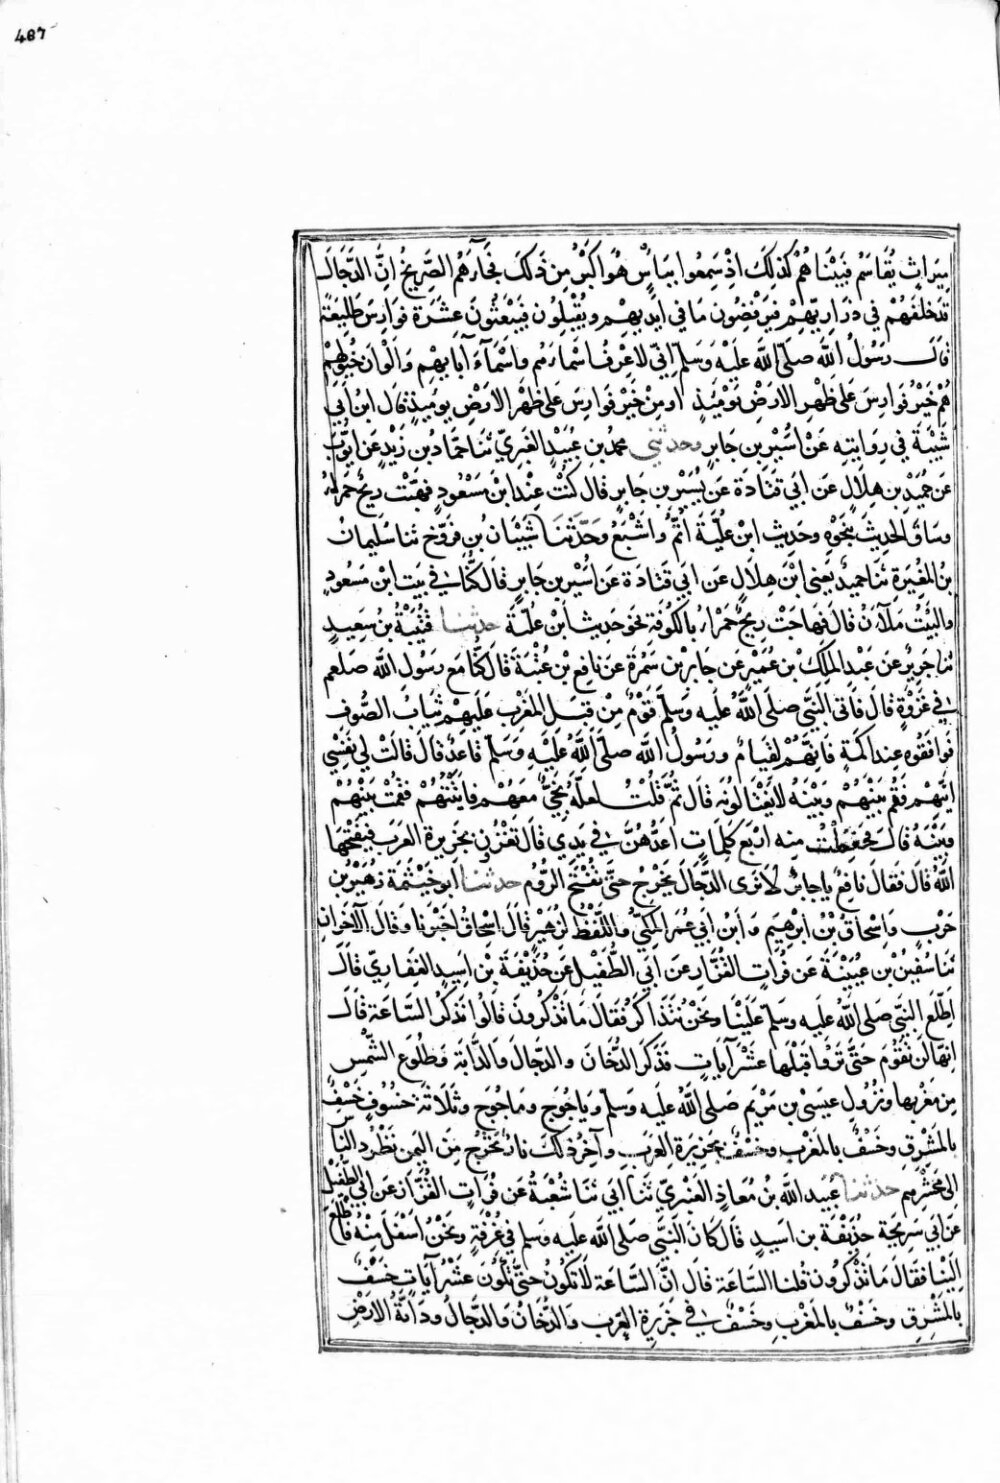 487
ميراث يقاسم فبيناهم كذلك اذ سمعوا ببأس هو اكبر من ذلك فجآءهم الصريخ ان الدجال
قد خلفهم في ذراريهم فيرفضون ما في ايديهم ويقبلون فيبعثون عشرة فوارس طليعة
قال رسول الله صلى الله عليه وسلم اني لاعرف اسماءهم واسمآء آبايهم والوان خيولهم
هم خير فوارس على ظهر الارض يوميذ او من خير فوارس على ظهر الارض يوميذ قال ابن ابي
شيبة في روايته عن اسير بن جابر وحدثني محمد بن عبيد الغبري ثنا حماد بن زيد عن ايوب
عن حميد بن هلال عن ابي قتادة عن يسير بن جابر قال كنت عند ابن مسعود فهبت ريح حمراء
وساق الحديث بنحوه وحديث ابن علية اتم واشبع وحدثنا شيبان بن فروخ ثنا سليمان
بن المغيرة ثنا حميد يعني ابن هلال عن ابي قتادة عن اسير بن جابر قال كنا في بيت ابن مسعود
والبيت ملآن قال فهاجت ريح حمراء بالكوفة نحو حديث ابن علية حدثنا قتيبة بن سعيد
ثنا جرير عن عبد الملك بن عمير عن جابر بن سمرة عن نافع بن عتبة قال كنا مع رسول الله صلعم
في غزوة قال فاتى النبي صلى الله عليه وسلم قوم من قبل المغرب عليهم ثياب الصوف
فوافقوه عند اكمة فانهم لقيام ورسول الله صلى الله عليه وسلم قاعد قال قالت لي نفسي
ايتهم فقم بينهم وبينه لا يغتالونه قال ثم قلت لعله نجي معهم فاتيتهم فقمت بينهم
وبينه قال فحفظت منه اربع كلمات اعدهن في يدي قال تغزون جزيرة العرب فيفتحها
الله قال فقال نافع يا جابر لا نرى الدجال يخرج حتى تفتح الروم حدثنا ابو خيثمة زهير بن
حرب واسحاق بن ابرهيم وابن ابي عمر المكي واللفظ لزهير قال اسحاق اخبرنا وقال الآخران
ثنا سفين بن عيينة عن فرات القزاز عن ابي الطفيل عن حذيفة بن اسيد الغفاري قال
اطلع النبي صلى الله عليه وسلم علينا ونحن نتذاكر فقال ما تذكرون قالوا نذكر الساعة قال
انها لن تقوم حتى تروا قبلها عشر آيات فذكر الدخان والدجال والدابة وطلوع الشمس
من مغربها ونزول عيسى بن مريم صلى الله عليه وسلم وياجوج وماجوج وثلاثة خسوف خسف
بالمشرق وخسف بالمغرب وخسف بجزيرة العرب وآخر ذلك نار تخرج من اليمن تطرد الناس
الى محشرهم حدثنا عبيد الله بن معاذ العنبري ثنا ابي ثنا شعبة عن فرات القزاز عن ابي الطفيل
عن ابي سريحة حذيفة بن اسيد قال كان النبي صلى الله عليه وسلم في غرفة ونحن اسفل منه فاطلع
الينا فقال ما تذكرون قلنا الساعة قال ان الساعة لا تكون حتى تكون عشر آيات خسف
بالمشرق وخسف بالمغرب وخسف في جزيرة العرب والدخان والدجال ودابة الارض